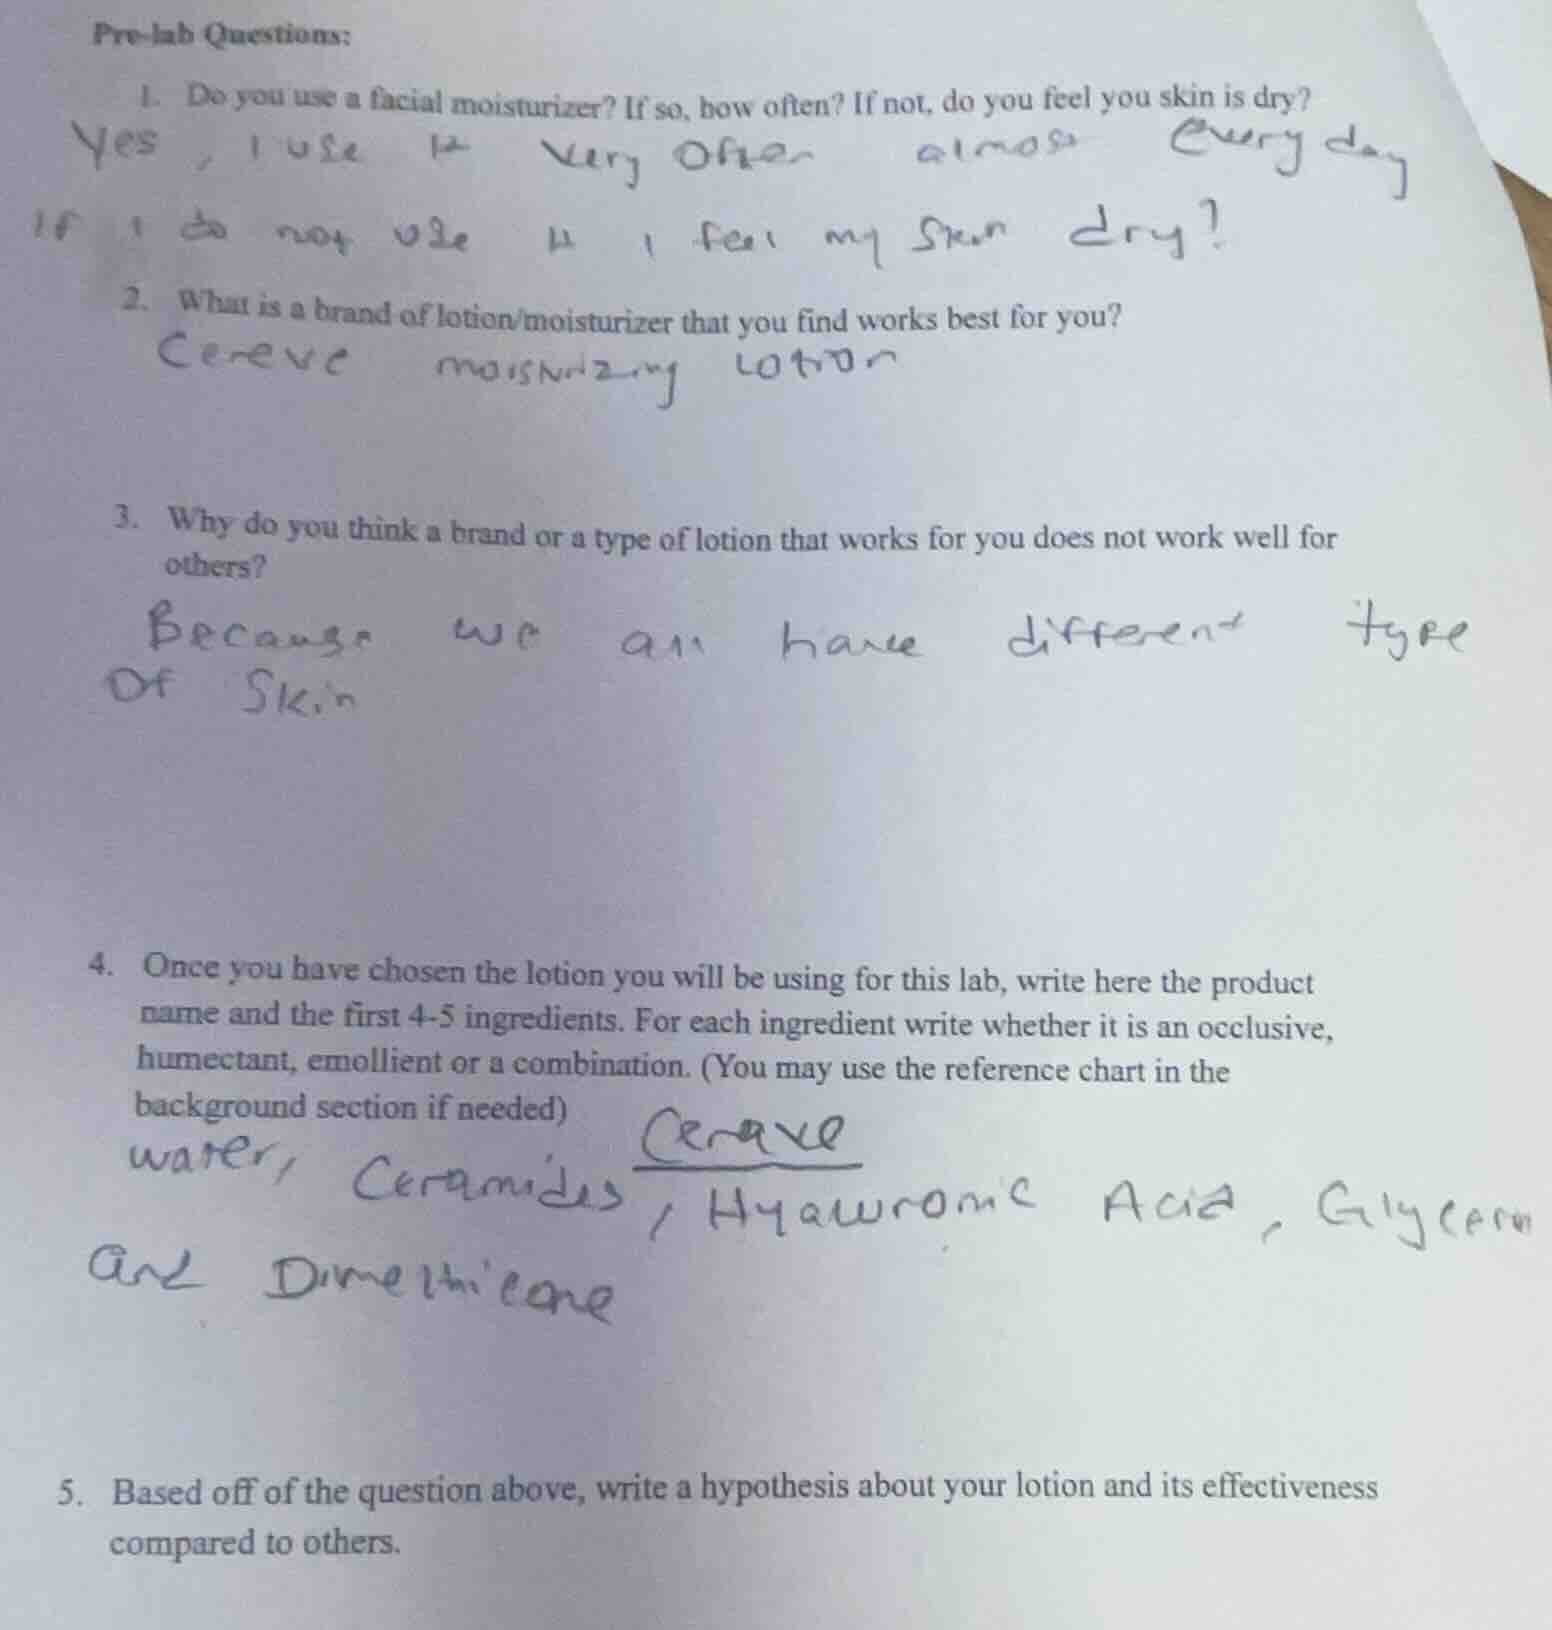 Pre-lab Questions:
1. Do you use a facial moisturizer? If so, how often? If not, do you feel you skin is dry?
Yes, I use it very often almost every day
If I do not use it I feel my skin dry?
2. What is a brand of lotion/moisturizer that you find works best for you?
Cereve moisturizing lotion
3. Why do you think a brand or a type of lotion that works for you does not work well for
others?
Because we all have different type
Of Skin
4. Once you have chosen the lotion you will be using for this lab, write here the product
name and the first 4-5 ingredients. For each ingredient write whether it is an occlusive,
humectant, emollient or a combination. (You may use the reference chart in the
background section if needed)
Cerave
water, Ceramides, Hyaluronic Acid, Glycerin
and Dimethicone
5. Based off of the question above, write a hypothesis about your lotion and its effectiveness
compared to others.